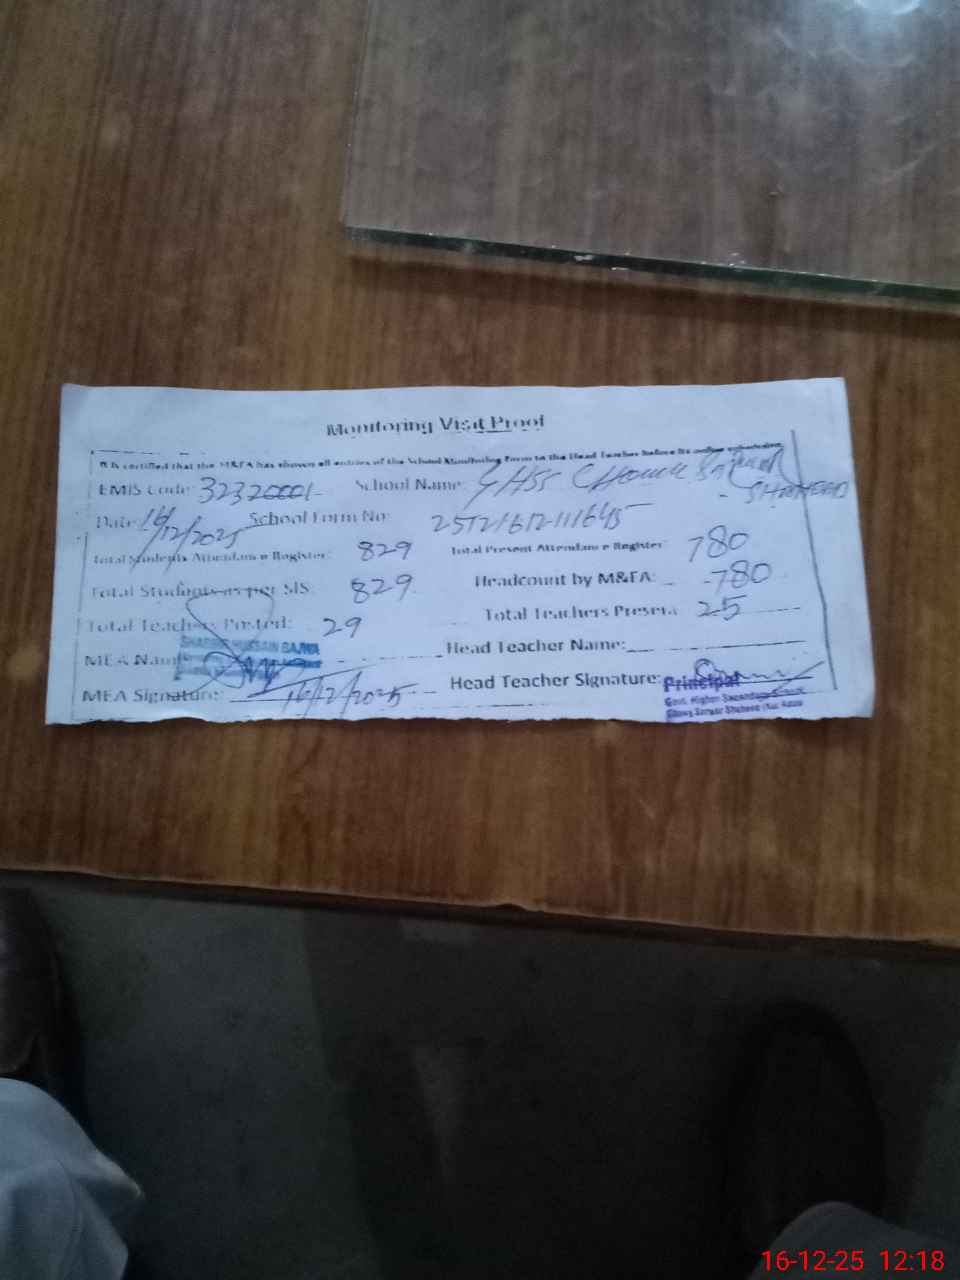 Monitoring Visit Proof
It is certified that the M&EA has shown all entries of the School Monitoring Form to the Head Teacher before its online submission.
EMIS Code: 32320001 School Name: GHSS Chowk Sarwar
SHAHEED
Date: 16/12/2025 School Form No:
Total Students Attendance Register: 829 Total Present Attendance Register: 780
Total Students as per SIS: 829 Headcount by M&EA: 780
Total Teachers Posted: 29 Total Teachers Present: 25
SHABBIR HUSSAIN BAJWA
MEA Name Head Teacher Name:
MEA Signature: 16/12/2025 Head Teacher Signature:
Principal
Govt. Higher Secondary School
Chowk Sarwar Shaheed
16-12-25 12:18